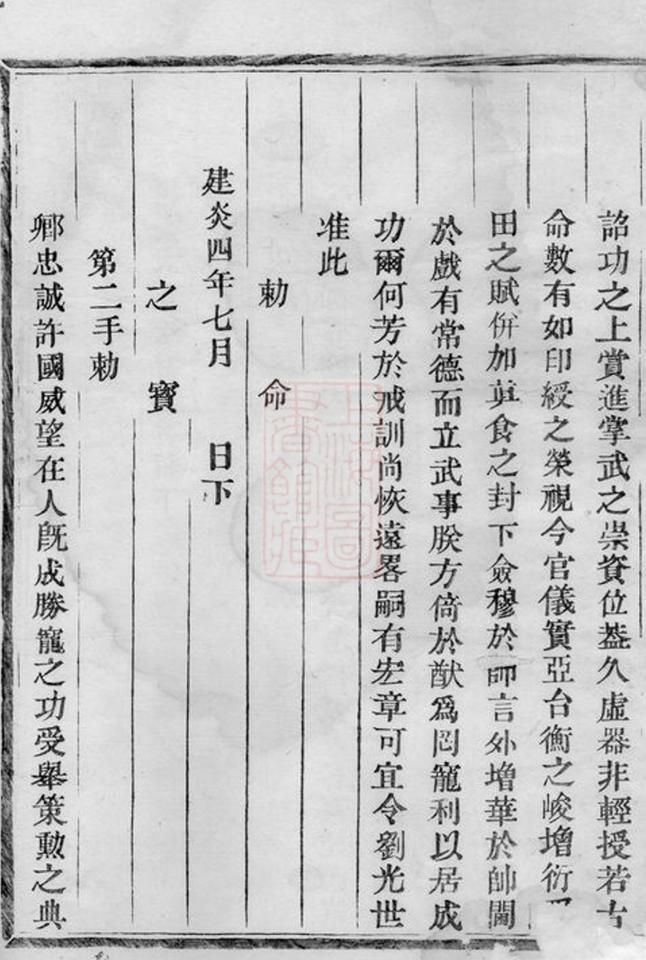 詔功之上賞進掌武之崇資位葢久虛器非輕授若古
命數有如印綬之榮視今官儀實亞台衡之峻增衍
田之賦倂加眞食之封下僉穆於師言外增華於帥閫
於戲有常德而立武事朕方倚於猷為罔寵利以居成
功爾何芳於戒訓尚恢遠畧嗣有宏章可宜令劉光世
准此
勅命
建炎四年七月 日下
之寶
第二手勅
卿忠誠許國威望在人旣成勝寵之功受舉策勳之典